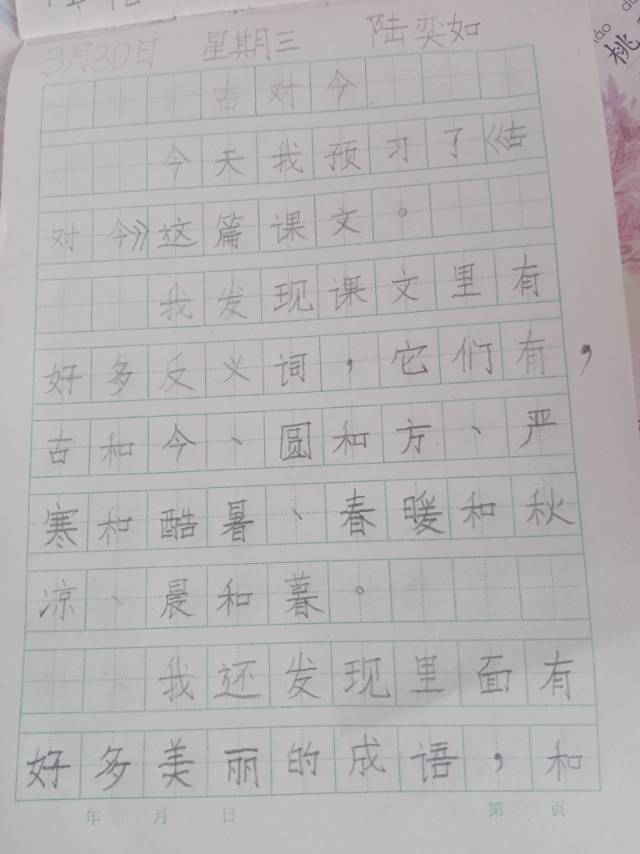 3月30日 星期三 陆奕如
古对今
今天我预习了《古
对今》这篇课文。
我发现课文里有
好多反义词，它们有，
古和今、圆和方、严
寒和酷暑、春暖和秋
凉、晨和暮。
我还发现里面有
好多美丽的成语，和
年 月 日 第 页
桃